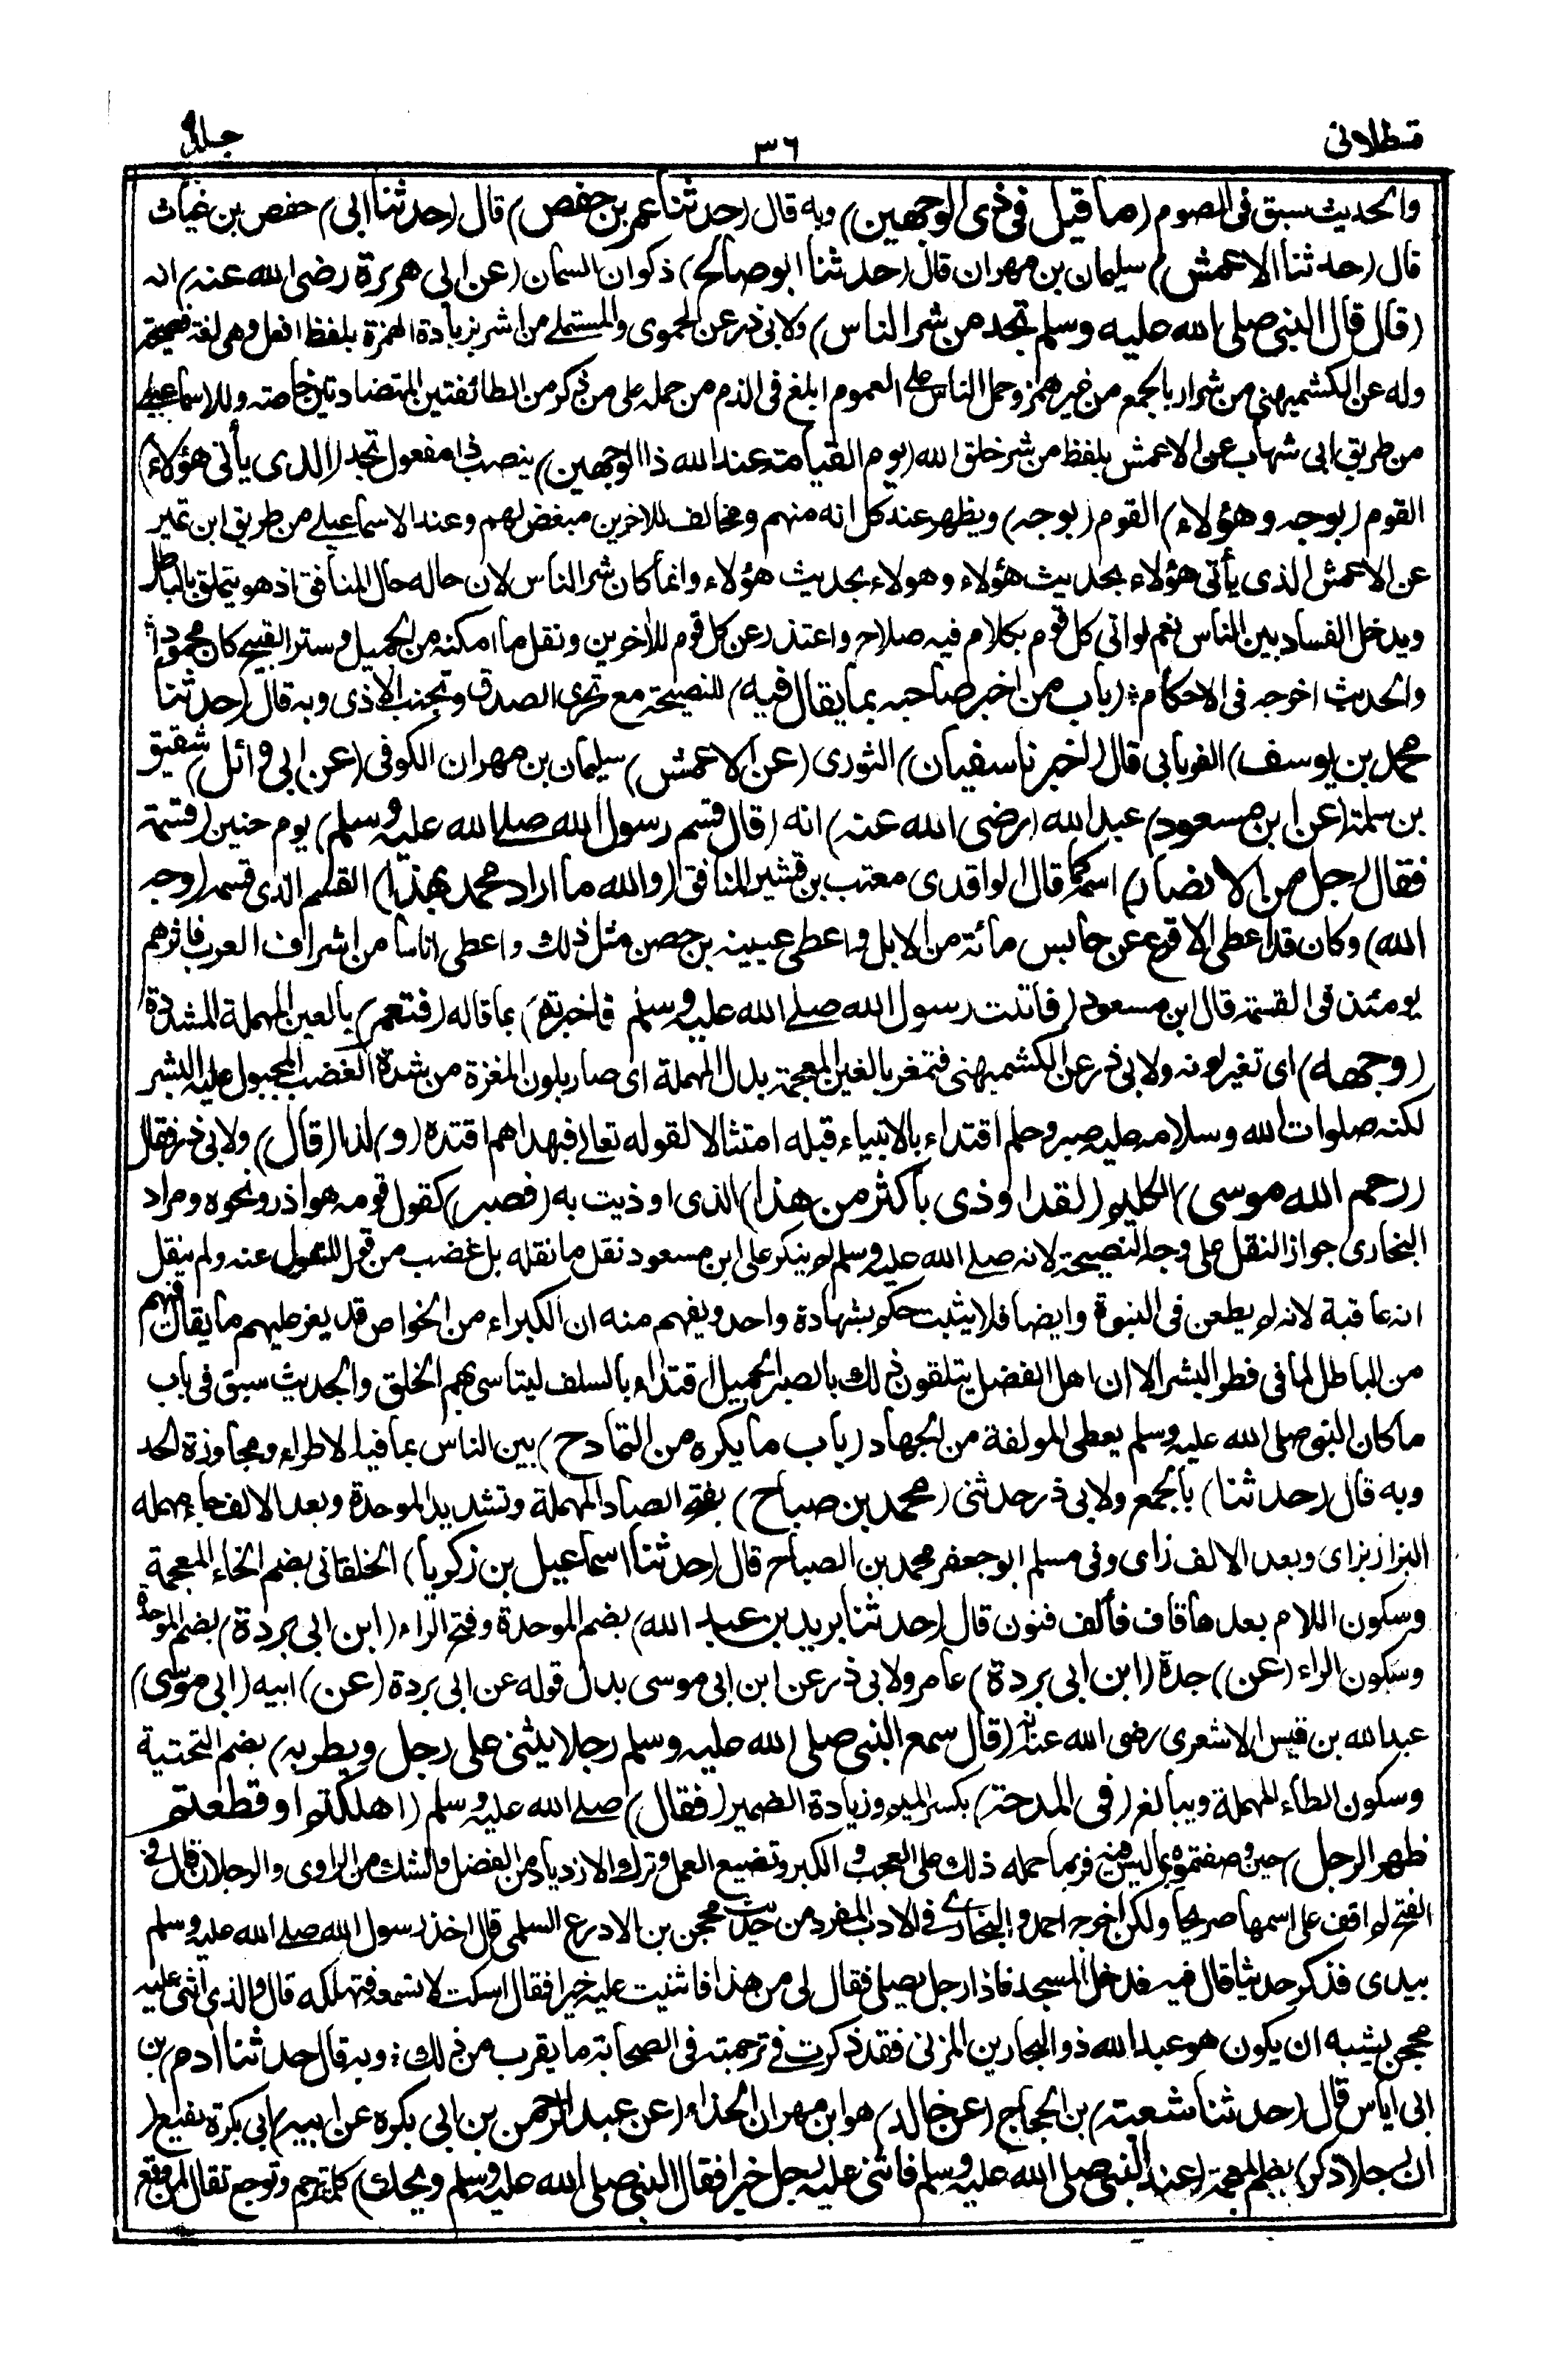 قسطلانى
٣٦
جلد٩
والحديث سبق فى الصوم (ما قيل فى ذى الوجهين) وبه قال (حدثنا عمر بن حفص) قال (حدثنا ابى) حفص بن غياث
قال (حدثنا الاعمش) سليمان بن مهران قال (حدثنا ابو صالح) ذكوان السمان (عن ابى هريرة رضى الله عنه) انه
(قال قال النبى صلى الله عليه وسلم تجد من شر الناس) ولابى ذر عن الحموى والمستملے من اشر بزيادة الهمزة بلفظ افعل وهى لغة فصيحة
وله عن الكشميهنى من شرار بالجمع من غير همز وحمل الناس على العموم ابلغ فى الذم من حمله على من ذكر من الطائفتين المتضادتين خاصة وللاسماعيلے
من طريق ابى شهاب عن الاعمش بلفظ من شر خلق الله (يوم القيامة عند الله ذا الوجهين) ينصب ذا مفعول تجد (الذى يأتى هؤلاء)
القوم (بوجه وهؤلاء) القوم (بوجه) ويظهر عند كل انه منهم ومخالف للاخرين مبغض لهم وعند الاسماعيلے من طريق ابن نمير
عن الاعمش الذى يأتى هؤلاء بحديث هؤلاء وهولاء بحديث هؤلاء وانما كان شر الناس لان حاله حال المنافق اذ هو يتملق بالباطل
ويدخل الفساد بين الناس نعم لو اتى كل قوم بكلام فيه صلاح واعتذر عن كل قوم للاخرين ونقل ما امكنه من الجميل وستر القبيح كان محمودا
والحديث اخرجه فى الاحكام (باب من اخبر صاحبه بما يقال فيه) للنصيحة مع تحرى الصدق وتجنب الاذى وبه قال (حدثنا
محمد بن يوسف) الفريابى قال (اخبرنا سفيان) الثورى (عن الاعمش) سليمان بن مهران الكوفى (عن ابى وائل) شقيق
بن سلمة (عن ابن مسعود) عبد الله (رضى الله عنه) انه (قال قسم رسول الله صلے الله عليه وسلم) يوم حنين (قسمة
فقال رجل من الانصار) اسمه كما قال الواقدى معتب بن قشير المنافق (والله ما اراد محمد بهذا) القسم الذى قسمه (وجه
الله) وكان قد اعطى الاقرع عن حابس مائة من الابل واعطى عيينه بن حصن مثل ذلك واعطى اناسا من اشراف العرب فاثرهم
يومئذ فى القسمة قال ابن مسعود (فاتيت رسول الله صلے الله عليه وسلم فاخبرته) بما قاله (فتعمر) بالعين المهملة المشددة
(وجهه) اى تغير لونه ولابى ذر عن الكشميهنى فتمغر بالغين المعجمة بدل المهملة اى صار بلون المغرة من شدة الغضب المجبول عليه البشر
لكنه صلوات الله وسلامه عليه صبر وحلم اقتداء بالانبياء قبله امتثالا لقوله تعالے فبهداهم اقتده (و) لذا (قال) ولابى ذر فقال
(رحم الله موسى) الكليم (لقد اوذى بأكثر من هذا) الذى اوذيت به (فصبر) كقول قومه هو اذر ونحوه ومراد
البخارى جواز النقل على وجه النصيحة لانه صلے الله عليه وسلم لم ينكر على ابن مسعود نقل ما نقله بل غضب من قول المنقول عنه ولم ينقل
انه عاقبة لانه لم يطعن فى النبوة وايضا فلا يثبت حكم بشهادة واحد ويفهم منه ان الكبراء من الخواص قد يعز عليهم ما يقال فيهم
من الباطل لما فى فطر البشر الا ان اهل الفضل يتلقون ذلك بالصبر الجميل اقتداء بالسلف ليتاسى بهم الخلق والحديث سبق فى باب
ما كان النبى صلى الله عليه وسلم يعطى المولفة من الجهاد (باب ما يكره من التمادح) بين الناس بما فيه الاطراء ومجاوزة الحد
وبه قال (حدثنا) بالجمع ولابى ذر حدثنى (محمد بن صباح) بفتح الصاد المهملة وتشديد الموحدة وبعد الالف حاء مهمله
البزاز بزاى وبعد الالف زاى وفى مسلم ابو جعفر محمد بن الصباح قال (حدثنا اسماعيل بن زكريا) الخلقانى بضم الخاء المعجمة
وسكون اللام بعدها قاف فألف فنون قال (حدثنا بريد بن عبد الله) بضم الموحدة وفتح الراء (ابن ابى بردة) بضم الموحدة
وسكون الراء (عن) جدة (ابن ابى بردة) عامر ولابى ذر عن ابن ابى موسى بدل قوله عن ابى بردة (عن) ابيه (ابى موسى)
عبد الله بن قيس الاشعرى رضى الله عنه (قال سمع النبى صلى الله عليه وسلم رجلا يثنى على رجل ويطريه) بضم التحتية
وسكون الطاء المهملة ويبالغ (فى المدحة) بكسر الميم وزيادة الضمير (فقال) صلے الله عليه وسلم (اهلكتم او قطعتم
ظهر الرجل) حين وصفتموه بما ليس فيه فربما حمله ذلك على العجب والكبر وتضييع العمل وترك الازدياد من الفضل والشك من الراوى والرجلان قال فى
الفتح لم اقف على اسمهما صريحا ولكن اخرجه احمد والبخارے فى الادب المفرد من حديث محجن بن الادرع السلمى قال اخذ رسول الله صلے الله عليه وسلم
بيدى فذكر حديثا قال فيه فدخل المسجد فاذا رجل يصلى فقال لى من هذا فاثنيت عليه خيرا فقال اسكت لا تسمعه فتهلكه قال والذى اثنى عليه
محجن يشبه ان يكون هو عبد الله ذو البجادين المزنى فقد ذكرت فى ترجمته فى الصحابة ما يقرب من ذلك وبه قال حدثنا ادم بن
ابى اياس قال (حدثنا شعبة) بن الحجاج (عن خالد) هو ابن مهران الحذاء (عن عبد الرحمن بن ابى بكره عن ابيه) ابى بكرة نفيع (
ان رجلا ذكر) بضم المعجمة (عند النبى صلى الله عليه وسلم فاثنى عليه رجل خيرا فقال النبى صلى الله عليه وسلم ويحك) كلمة ترحم وتوجع تقال لمن وقع